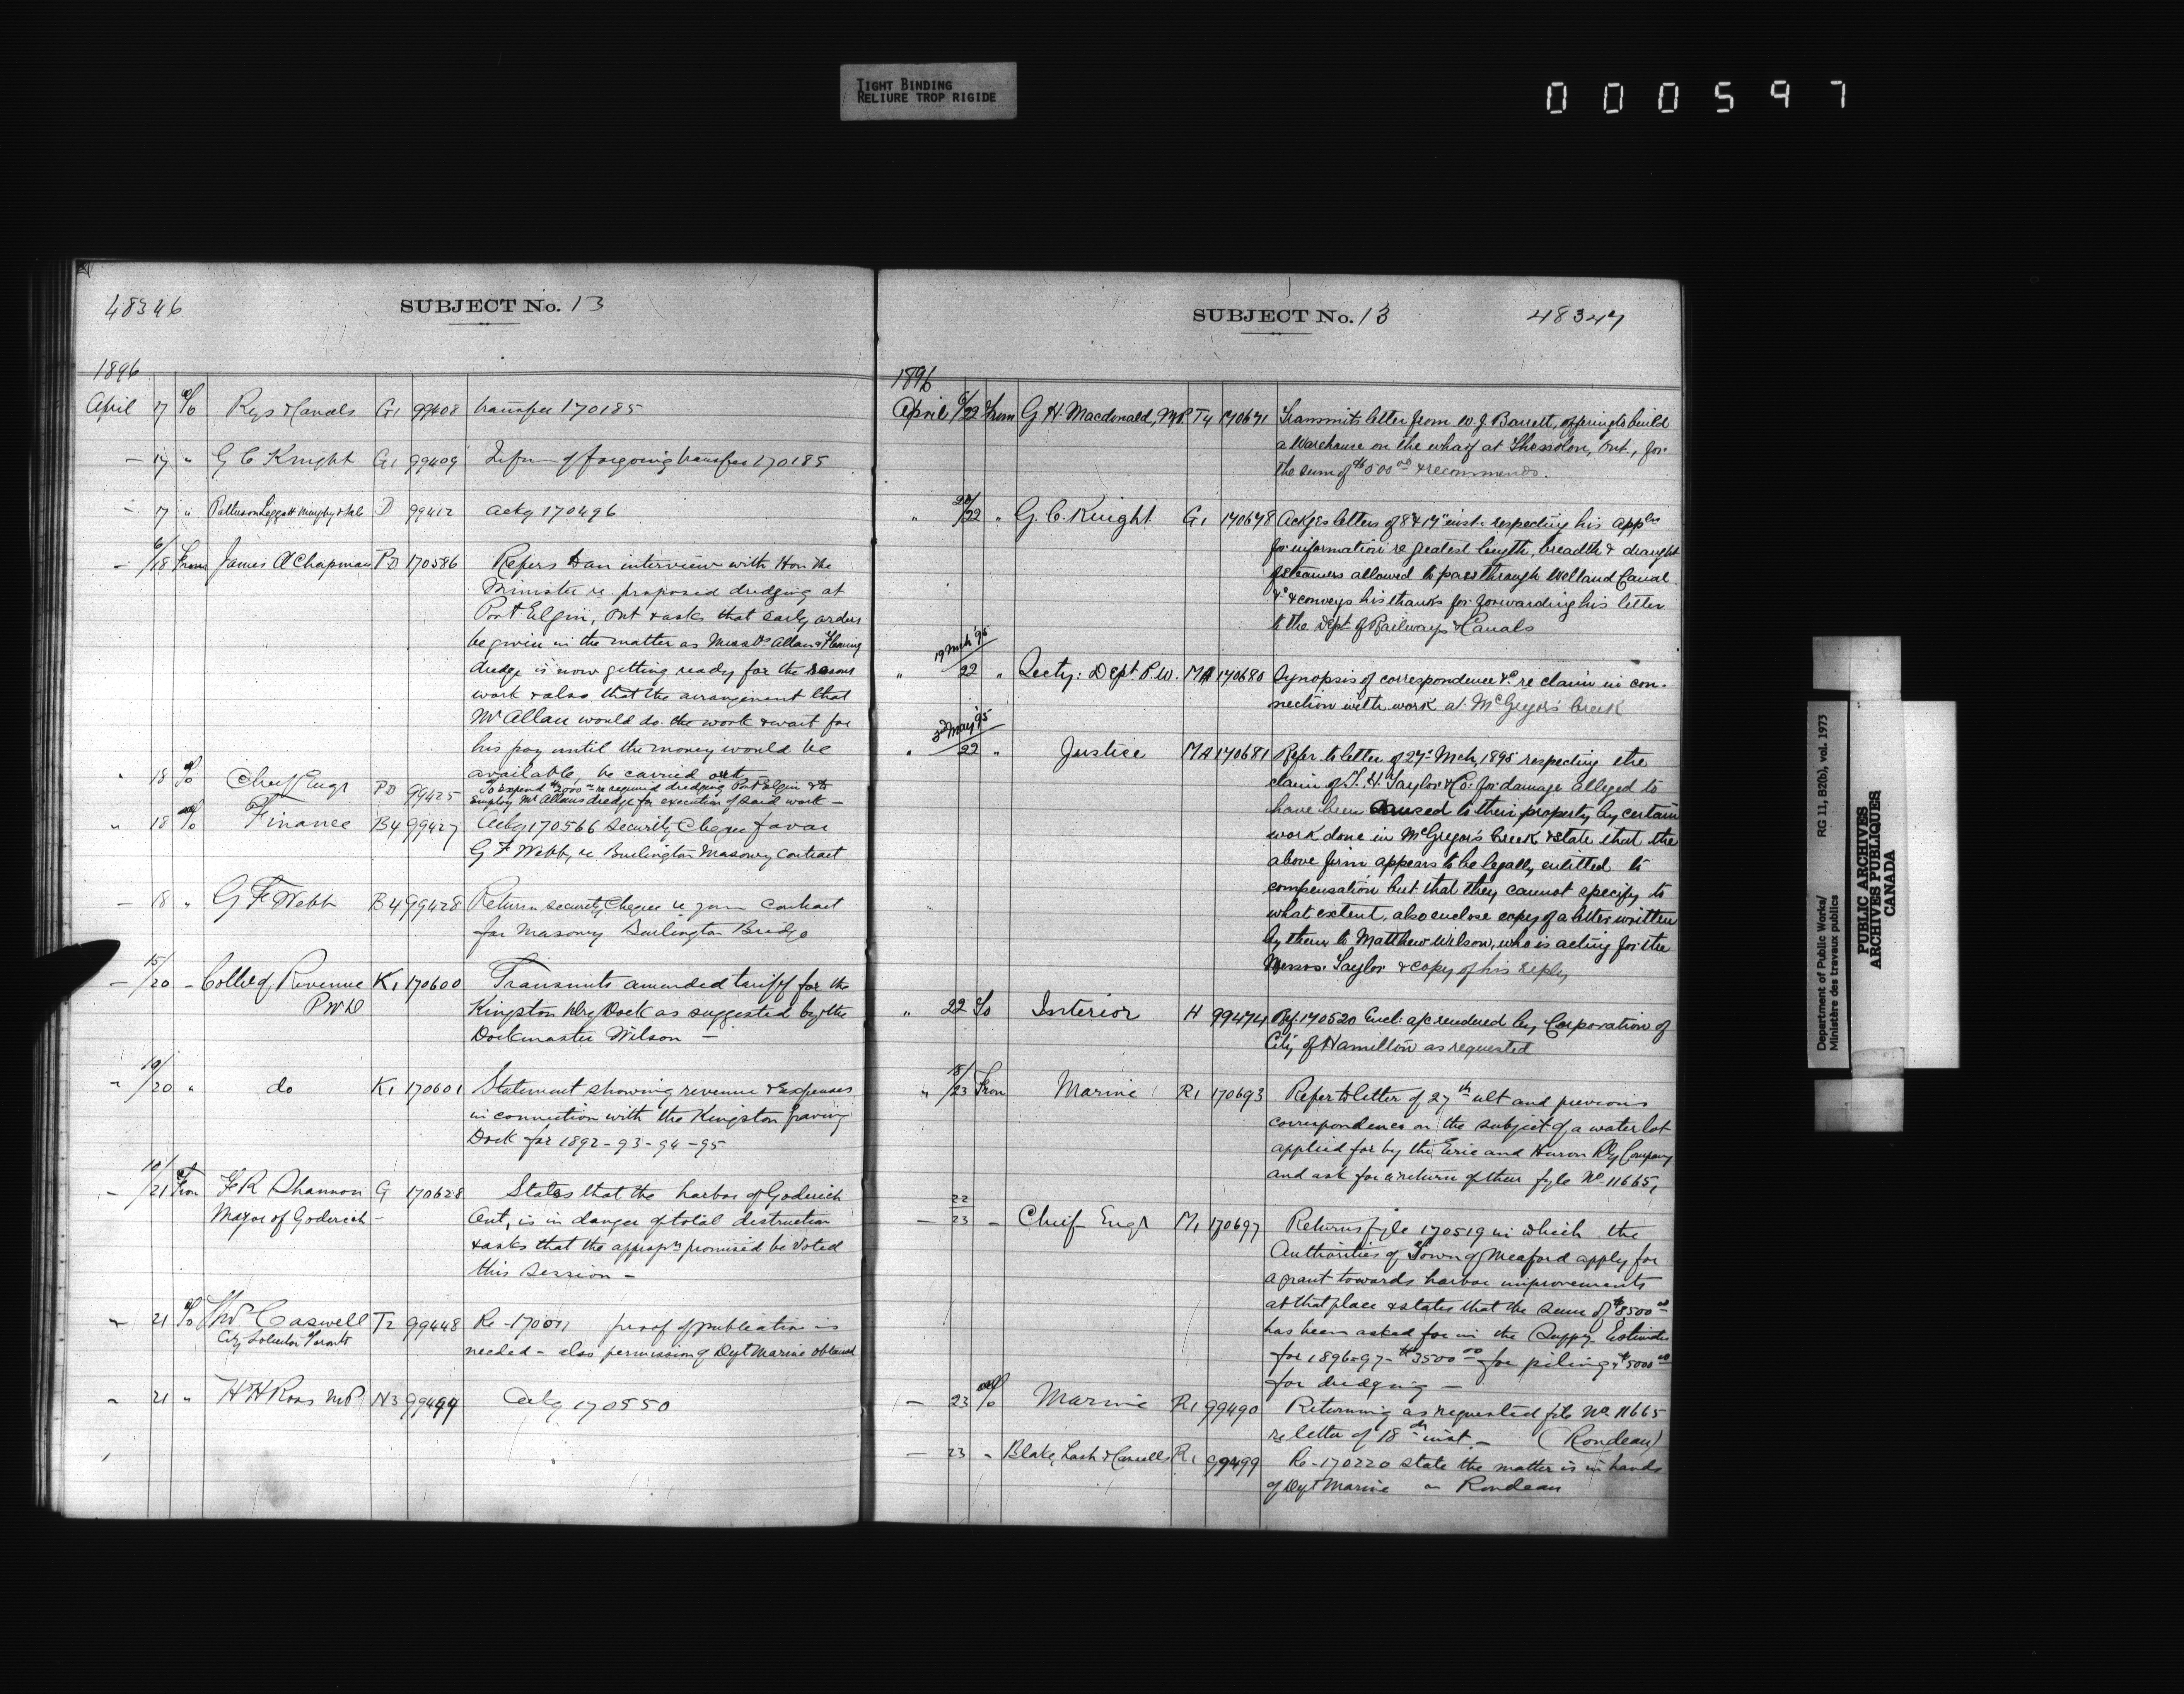 TIGHT BINDING
RELIURE TROP RIGIDE
000597
48346
SUBJECT No. 13
1896
April 17 To Rys & Canals G1 99408 transfer 170185
- 17 " G C Knight G1 99409 Infm of forgoing transfer 170185
- 17 " Patterson Leggatt Murphy & D 99412 ackg 170496
- 6/18 From James A Chapman PD 170586 Refers to an interview with Hon the
Minister re proposed dredging at
Port Elgin, Ont & asks that early orders
be given in the matter as Messrs Allan & Fleming
dredge is now getting ready for the seasons
work & also that the arrangement that
Mr Allan would do the work & wait for
his pay until the money would be
available, be carried out
" 18 To Chief Engr PD 99425 To expend $2000 re required dredging Port Elgin & to
employ Mr Allans dredge for execution of said work -
" 18 To Finance B4 99427 Ackg 170566 security Cheque favor
G F Webb, re Burlington Masonry Contract
- 18 " G F Webb B4 99428 Return security Cheque re your contract
for Masonry Burlington Bridge
- 15/20 - Coll of Revenue K1 170600 Transmits amended tariff for the
PWD Kingston Dry Dock as suggested by the
Dockmaster Wilson -
" 10/20 " do K1 170601 Statement showing revenue & Expenses
in connection with the Kingston Graving
Dock for 1892-93-94-95
- 10/21 From F R Shannon G 170628 States that the harbor of Goderich
Mayor of Goderich - Ont, is in danger of total distruction
& asks that the appropn promised be voted
this session -
" 21 To Thos Caswell T2 99448 Re - proof of publication is
City Solicitor Toronto needed - also permission of Dept Marine obtained
" 21 " H H Ross MP N3 Ackg 170550
SUBJECT No. 13
48347
1896
April 6/22 From G. H. Macdonald, M.P. T4 170671 Transmits letter from W. J. Barrett, offering to build
a Warehouse on the wharf at Thessolon, Ont., for
the sum of $500 00 & recommends.
" 20/22 " G. C. Knight G1 170678 Ackges letters of 8 & 17" inst. respecting his appln
for information re greatest length, breadth & draught
of steamers allowed to pass through Welland Canal
&c & conveys his thanks for forwarding his letter
to the Dept of Railways & Canals
19 Mch '95
" 22 " Secty: Dept. P.W. MA 170680 Synopsis of correspondence &c re claim in con-
nection with work at McGregor's Creek
3rd May '95
" 22 " Justice MA 170681 Refer to letter of 27" Mch, 1895 respecting the
claim of T. H. Taylor & Co. for damage alleged to
have been caused to their property by certain
work done in McGregor's Creek & state that the
above firm appears to be legally entitled to
compensation but that they cannot specify to
what extent, also enclose copy of a letter written
by them to Matthew Wilson, who is acting for the
Messrs. Taylor & copy of his reply
" 22 To Interior H 99474 Rf. 170520 Encl: a/c rendered by Corporation of
City of Hamilton as requested
" 18/23 From Marine R1 170693 Refer to letter of 27th ult and previous
correspondence on the subject of a water lot
applied for by the Erie and Huron Ry Company
and ask for a return of their fyle No 11665,
- 22/23 - Chief Engr M1 170697 Returns fyle 170519 in which the
Authorities of Town of Meaford apply for
a grant towards harbor improvements
at that place & states that the sum of $8500 00
has been asked for in the Suppy Estimates
for 1896-97 - $3500 00 for piling & $5000 00
for dredging -
- 23 To Marine R1 99490 Returning as requested file No 11665
re letter of 18th inst - (Rondeau)
- 23 - Blake, Lash & Cassells R1 99499 Re - 170220 state the matter is in hands
of Dept Marine - Rondeau
Department of Public Works/
Ministère des travaux publics
RG 11, B2(b), vol. 1973
PUBLIC ARCHIVES
ARCHIVES PUBLIQUES
CANADA